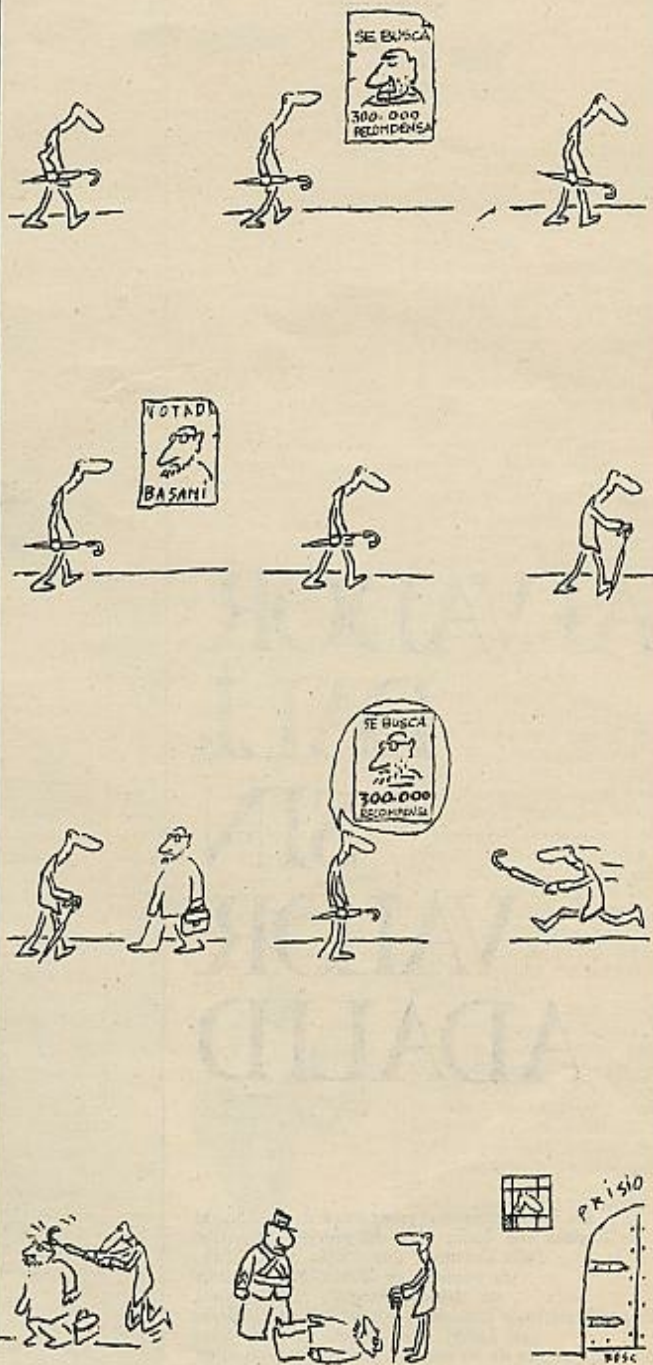 SE BUSCA
300.000
RECOMPENSA
VOTAD
BASANÍ
SE BUSCA
300.000
RECOMPENSA
PRISIO